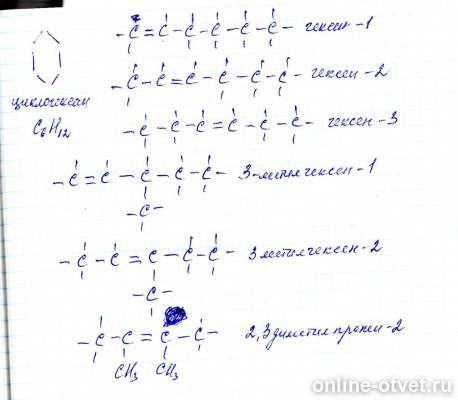 -C=C-C-C-C-C- гексен-1
-C-C=C-C-C-C- гексен-2
циклогексан
C6H12
-C-C-C=C-C-C- гексен-3
-C=C-C-C-C- 3-метилгексен-1
-C-
-C-C=C-C-C- 3метилгексен-2
-C-
-C-C=C-C- 2,3диметилпропен-2
CH3 CH3
online-otvet.ru